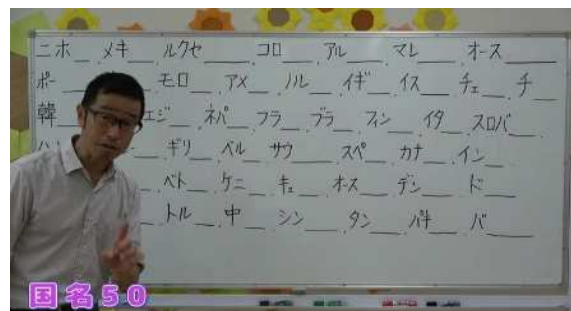 ニホ__ メキ__ ルクセ____ コロ____ アル____ マレ____ オース____
ポー__ モロ__ アメ__ ノル__ イギ__ イス__ チェ__ チ__
韓__ エジ__ ネパ__ フラ__ ブラ__ フィン__ イタ__ スロバ__
ハン__ ギリ__ ベル__ サウ____ スペ__ カナ__ イン__
ベト__ ケニ__ キュ__ オース__ デン__ ド__
トル__ 中__ シン__ タン__ パキ__ バ____
国名50